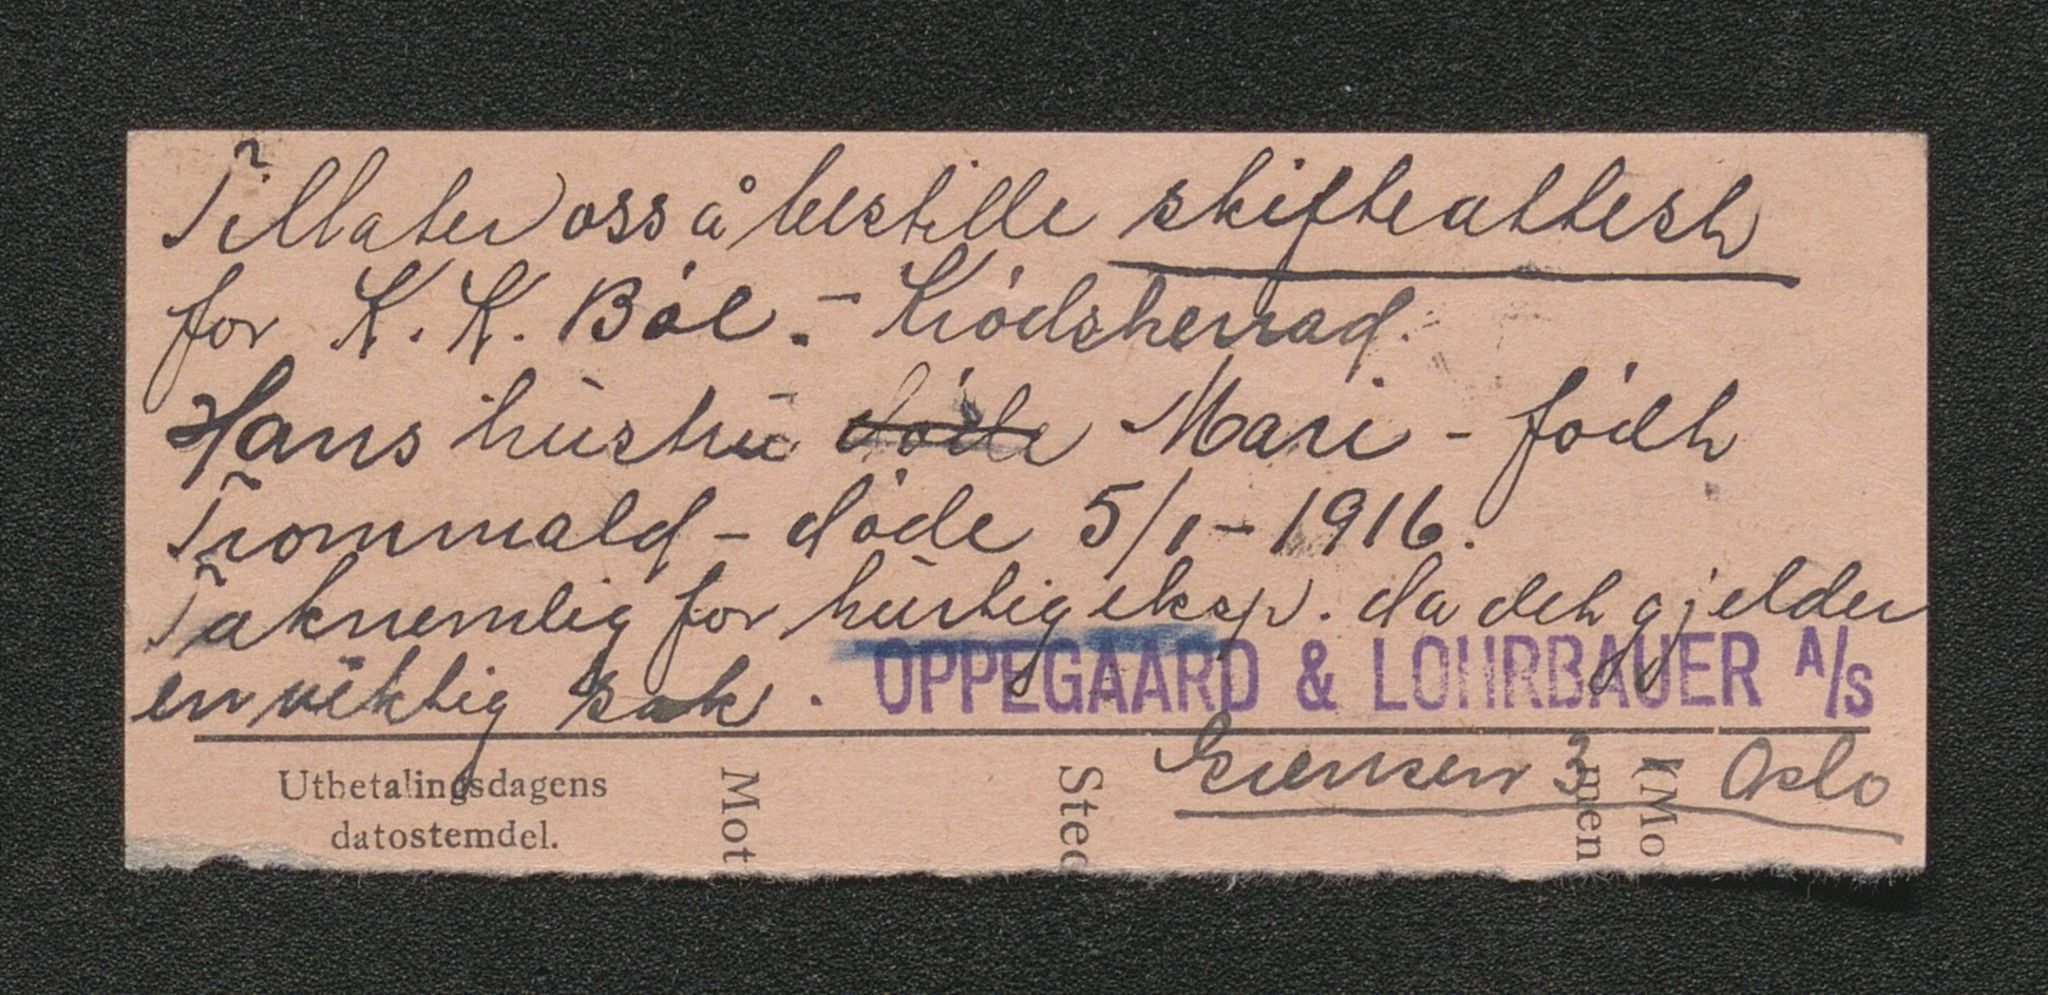 Tillater oss å bestille skifteattest
for K. K. Bøl. - Krødsherrad.
Hans hustru døde Mari - født
Trommald - døde 5/1 - 1916.
Taknemlig for hurtig eksp. da det gjelder
en viktig sak.
OPPEGAARD & LOHRBAUER A/S
Grensen 3 Oslo
Utbetalingsdagens
datostemdel.
Mot
Sted
nen
(Mo